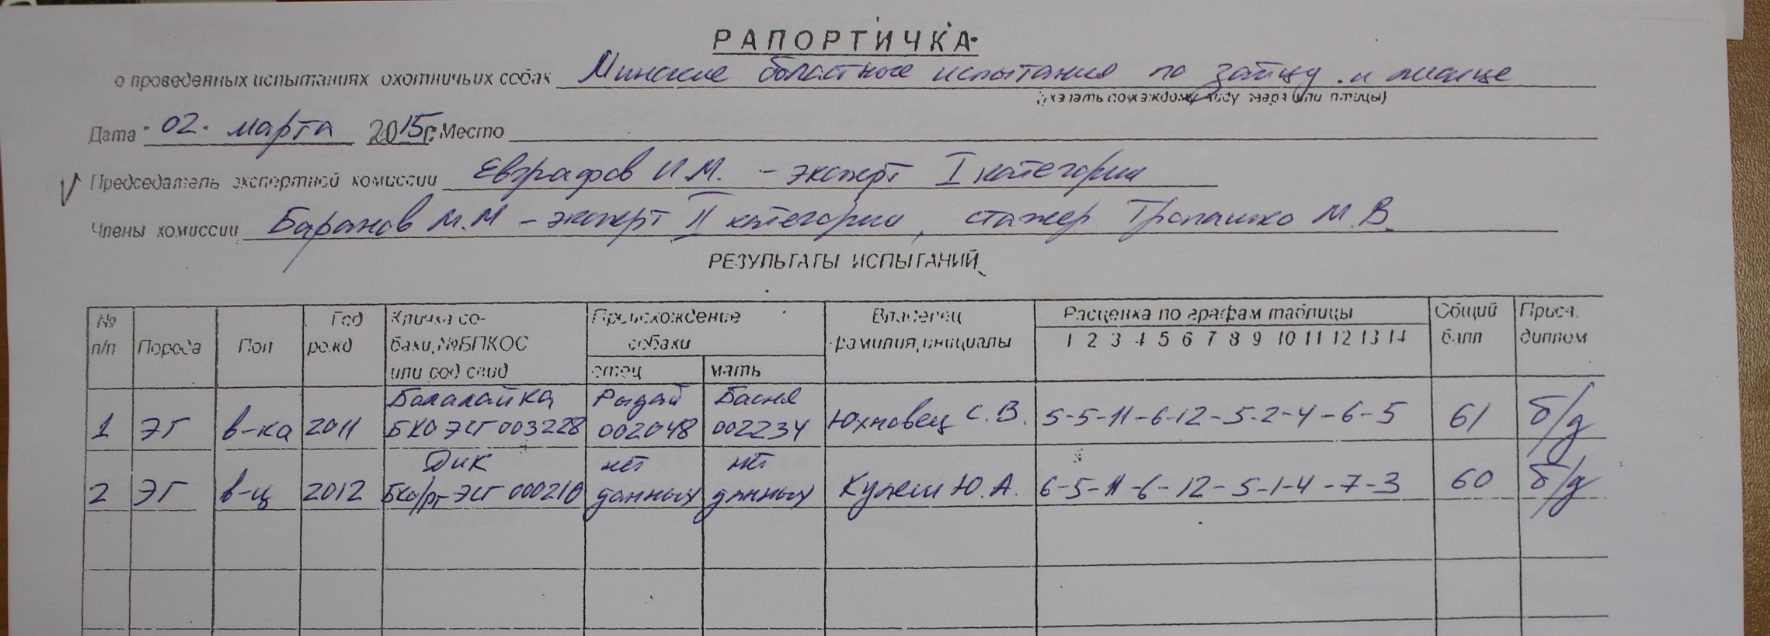 РАПОРТИЧКА
о проведенных испытаниях охотничьих собак Минские областные испытания по зайцу и лисице
(указать по каждому виду зверя или птицы)
Дата 02 марта 2015г. Место
Председатель экспертной комиссии Евграфов И.М. – эксперт I категории
Члены комиссии Баранов М.М – эксперт II категории, стажер Тропашко М.В.
РЕЗУЛЬТАТЫ ИСПЫТАНИЙ
№ п/п Порода Пол Год рожд Кличка собаки, №БПКОС или род свид Происхождение собаки отец мать Владелец фамилия, инициалы Расценка по графам таблицы 1 2 3 4 5 6 7 8 9 10 11 12 13 14 Общий балл Присв. диплом
1 ЭГ в-ка 2011 Балалайка БКО ЭГ 003228 Рыдай 002048 Басня 002234 Юхновец С.В. 5-5-11-6-12-5-2-4-6-5 61 б/д
2 ЭГ в-ц 2012 Дик БКО/рт ЭГ 000210 нет данных нет данных Кулеш Ю.А. 6-5-11-6-12-5-1-4-7-3 60 б/д